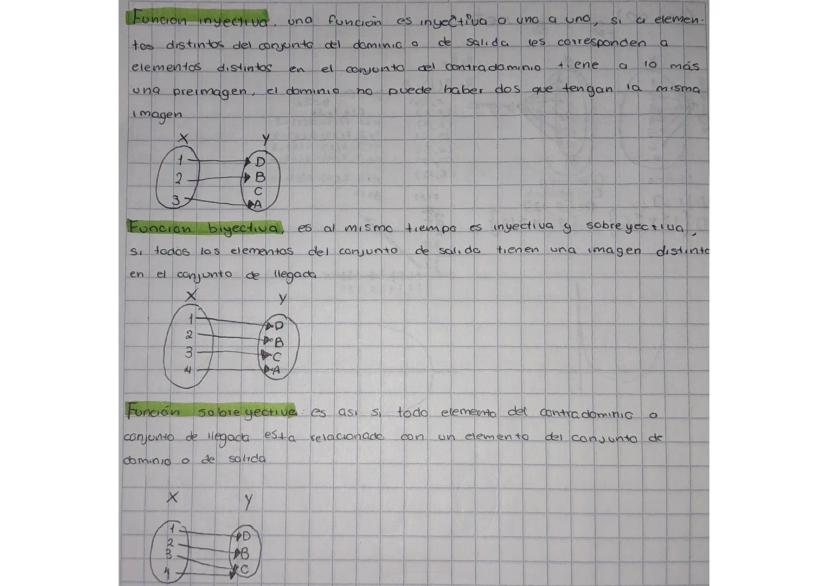 Función inyectiva, una función es inyectiva o uno a uno, si a elemen-
tos distintos del conjunto del dominio o de salida les corresponden a
elementos distintos en el conjunto del contradominio tiene a lo más
una preimagen, el dominio no puede haber dos que tengan la misma
imagen
X Y
1 D
2 B
C
3 A
Función biyectiva, es al mismo tiempo es inyectiva y sobreyectiva,
si todos los elementos del conjunto de salida tienen una imagen distinta
en el conjunto de llegada
X Y
1 D
2 B
3 C
4 A
Función sobreyectiva: es asi si todo elemento del contradominio o
conjunto de llegada esta relacionado con un elemento del conjunto de
dominio o de salida
X Y
1 D
2 B
3 C
4